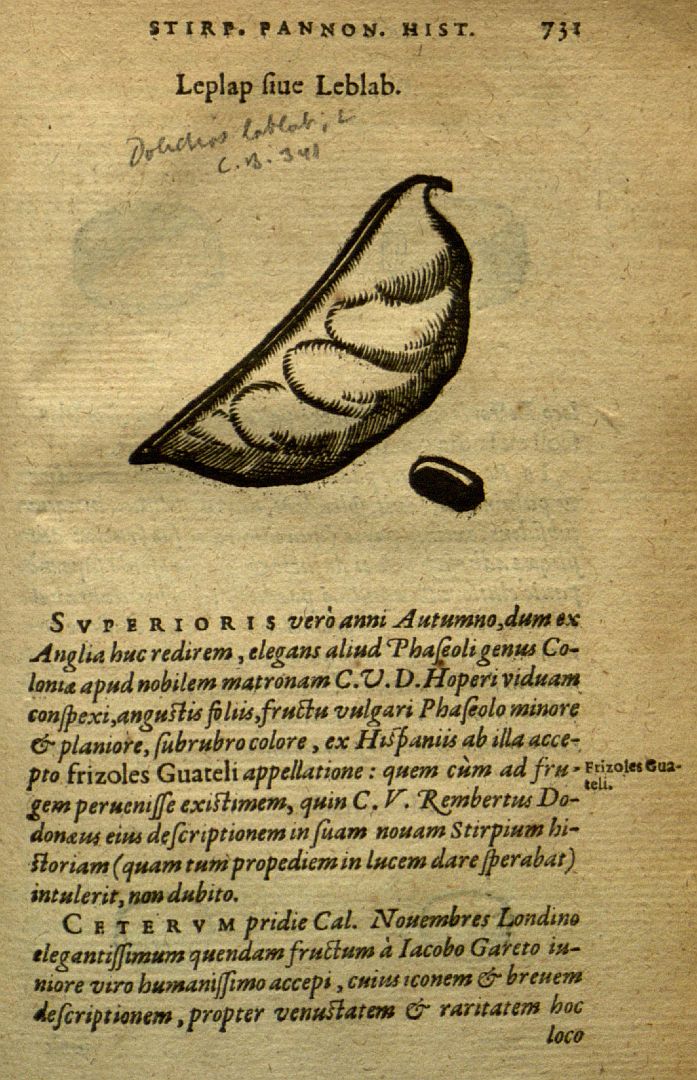 STIRP. PANNON. HIST. 731
Leplap ſiue Leblab.
Dolichos lablab, L
C.B. 341
SVPERIORIS verò anni Autumno, dum ex
Anglia huc redirem, elegans aliud Phaſeoli genus Co-
loniæ apud nobilem matronam C.V.D. Hoperi viduam
conſpexi, anguſtis foliis, fructu vulgari Phaſeolo minore
& planiore, ſubrubro colore, ex Hiſpaniis ab illa acce-
pto frizoles Guateli appellatione: quem cùm ad fru-
Frizoles Gua-
teli.
gem perueniſſe exiſtimem, quin C. V. Rembertus Do-
donæus eius deſcriptionem in ſuam nouam Stirpium hi-
ſtoriam (quam tum propediem in lucem dare ſperabat)
intulerit, non dubito.
CETERVM pridie Cal. Nouembres Londino
elegantiſſimum quendam fructum à Iacobo Gareto iu-
niore viro humaniſſimo accepi, cuius iconem & breuem
deſcriptionem, propter venuſtatem & raritatem hoc
loco